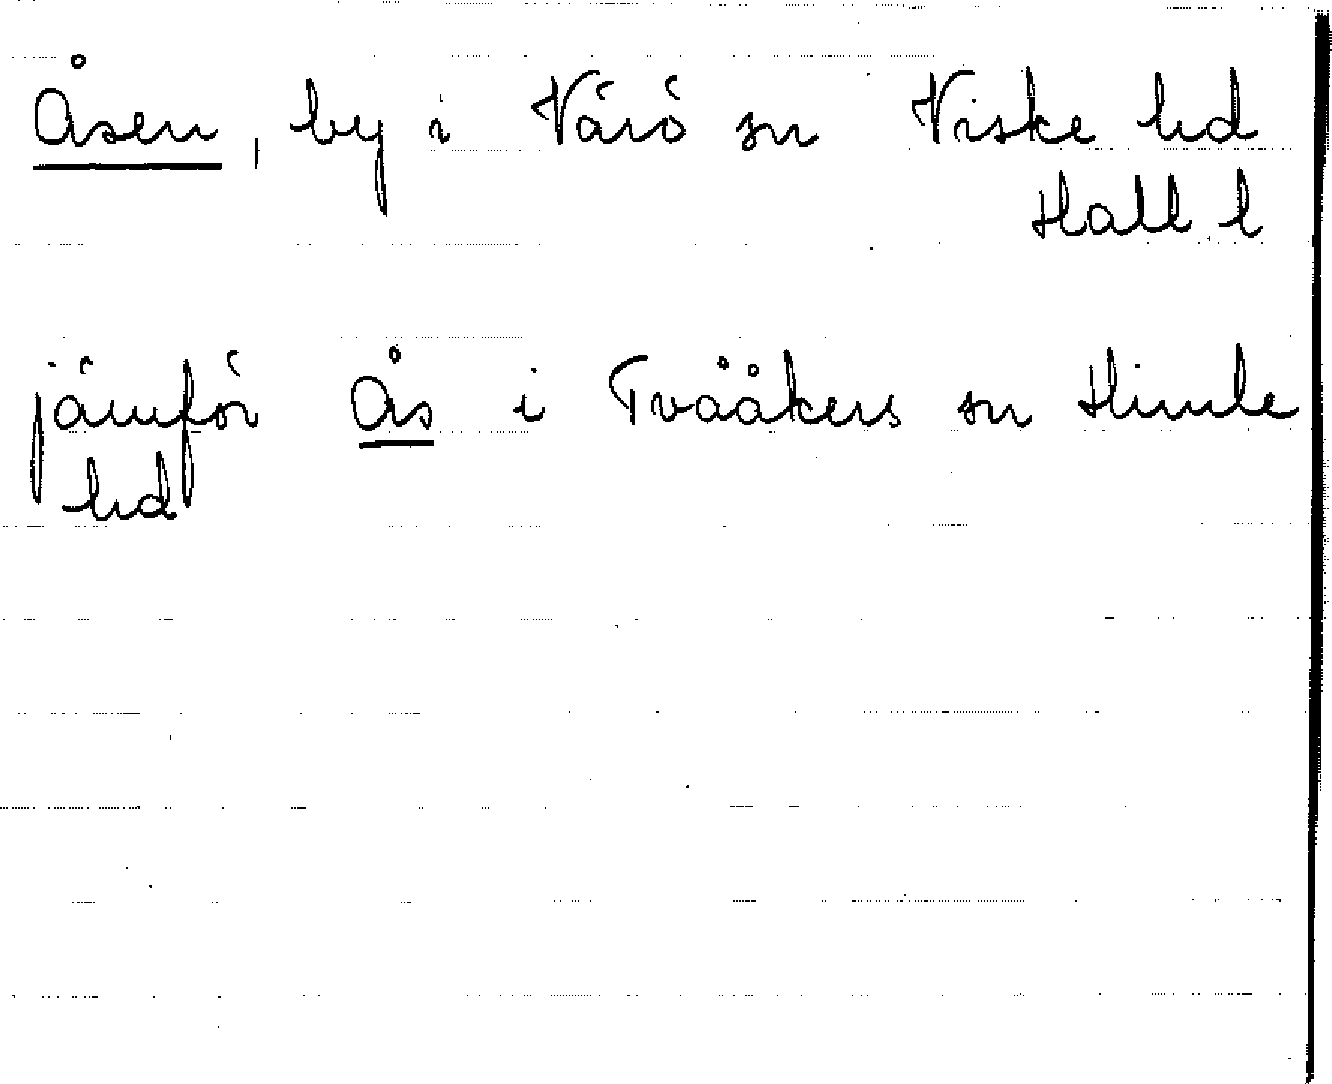 Åsen, by i Värö sn Viske hd
Hall. l
jämför Ås i Tvååkers sn Himle
hd